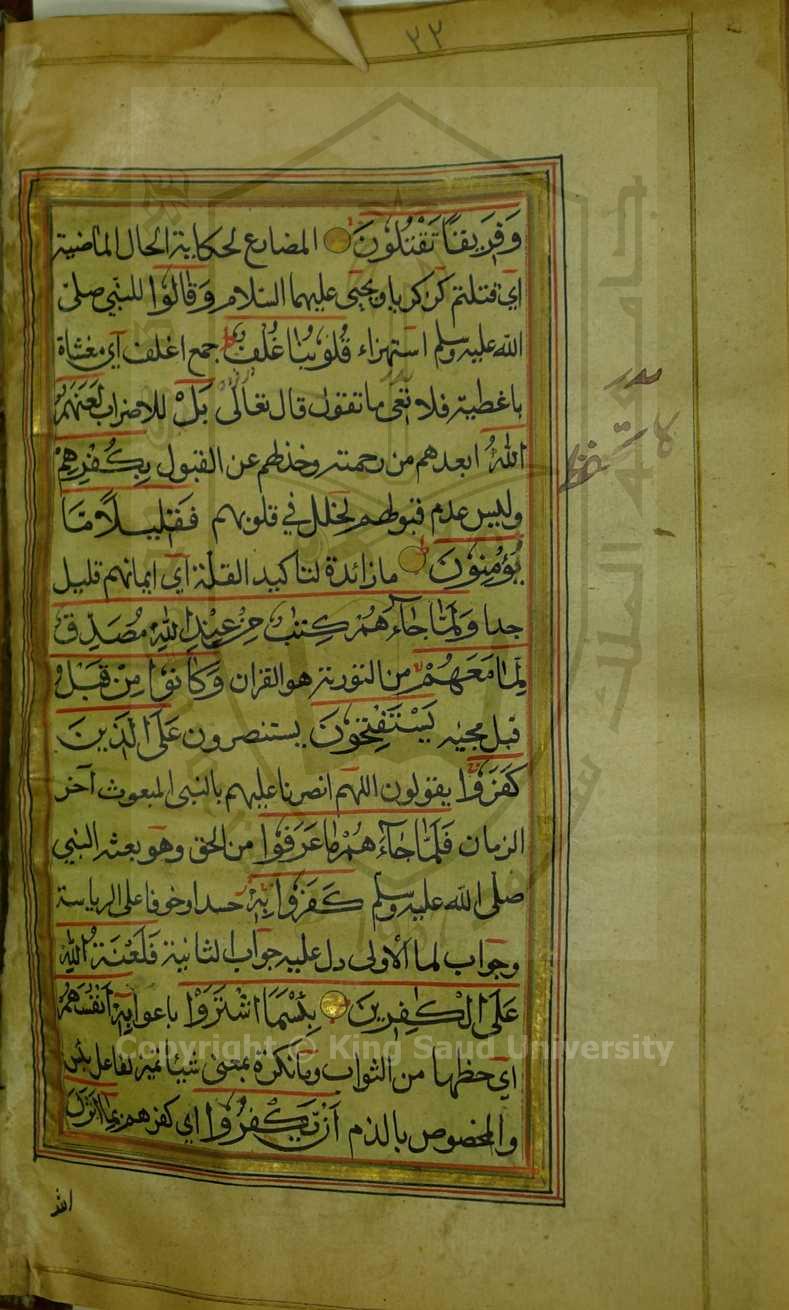 ٢٢
وَفَرِيقًا تَقْتُلُونَ المضارع لحكاية الحال الماضية
اي قتلتم كزكريا ويحيى عليهما السلام وَقَالُوا للنبي صلى
الله عليه وسلم استهزاء قُلُوبُنَا غُلْفٌ جمع اغلف اي مغشاة
باغطية فلا تعى ما تقول قال تعالى بَلْ للاضراب لَعَنَهُمُ
اللّٰهُ ابعدهم من رحمته وخذلهم عن القبول بِكُفْرِهِمْ
وليس عدم قبولهم لخلل في قلوبهم فَقَلِيلًا مَّا
يُؤْمِنُونَ ما زائدة لتاكيد القلة اي ايمانهم قليل
جدا وَلَمَّا جَاءَهُمْ كِتٰبٌ مِنْ عِنْدِ اللّٰهِ مُصَدِّقٌ
لِمَا مَعَهُمْ من التورية هو القران وَكَانُوا مِنْ قَبْلُ
قبل مجيئه يَسْتَفْتِحُونَ يستنصرون عَلَى الَّذِينَ
كَفَرُوا يقولون اللهم انصرنا عليهم بالنبى المبعوث آخر
الزمان فَلَمَّا جَاءَهُمْ مَا عَرَفُوا من الحق وهو بعثه النبي
صلى الله عليه وسلم كَفَرُوا بِهِ حسدا وخوفا على الرياسة
وجواب لما الاولى دل عليه جواب الثانية فَلَعْنَةُ اللّٰهِ
عَلَى الْكٰفِرِينَ بِئْسَمَا اشْتَرَوْا باعوا بِهِ اَنْفُسَهُمْ
اي حظها من الثواب وما نكرة بمعنى شيئا تميز لفاعل بئس
والمخصوص بالذم اَنْ يَكْفُرُوا اي كفرهم بِمَا اَنْزَلَ
الله
Copyright © King Saud University